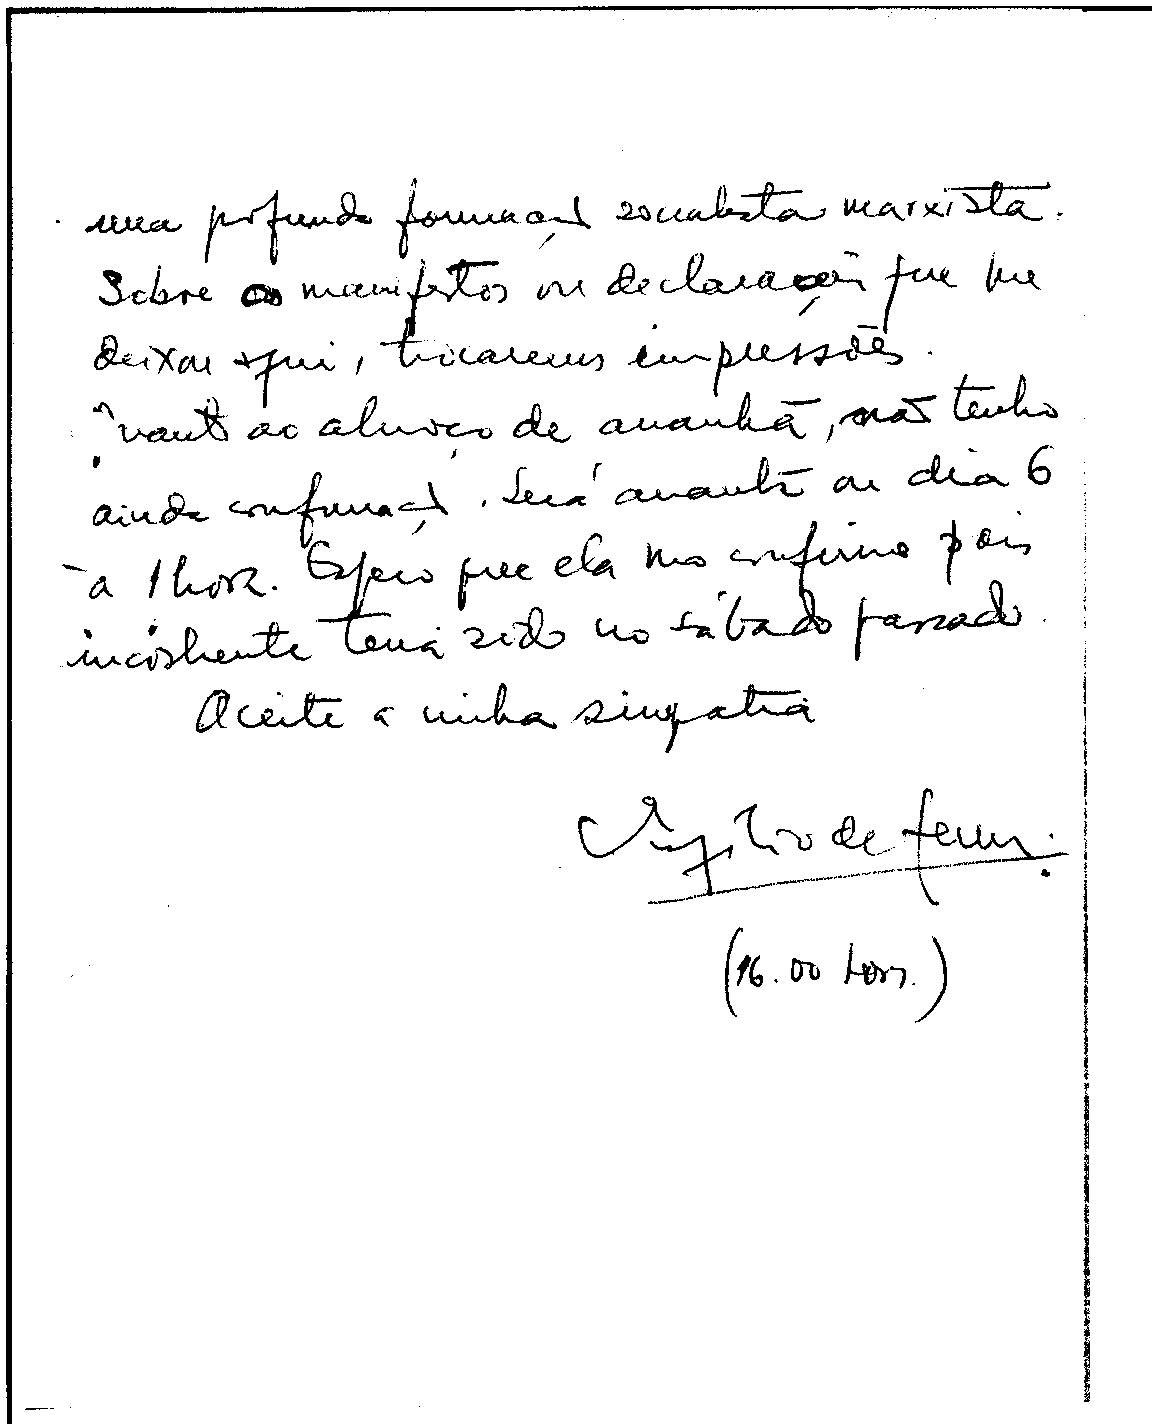 uma profunda formação socialista marxista.
Sobre os manifestos ou declarações que me
deixou aqui, trocaremos impressões.
Quanto ao almoço de amanhã, não tenho
ainda confirmação. Será amanhã ou dia 6
à 1 hora. Espero que ela mo confirme pois
inicialmente teria sido no sábado passado.
Aceite a minha simpatia
de
(16.00 horas.)